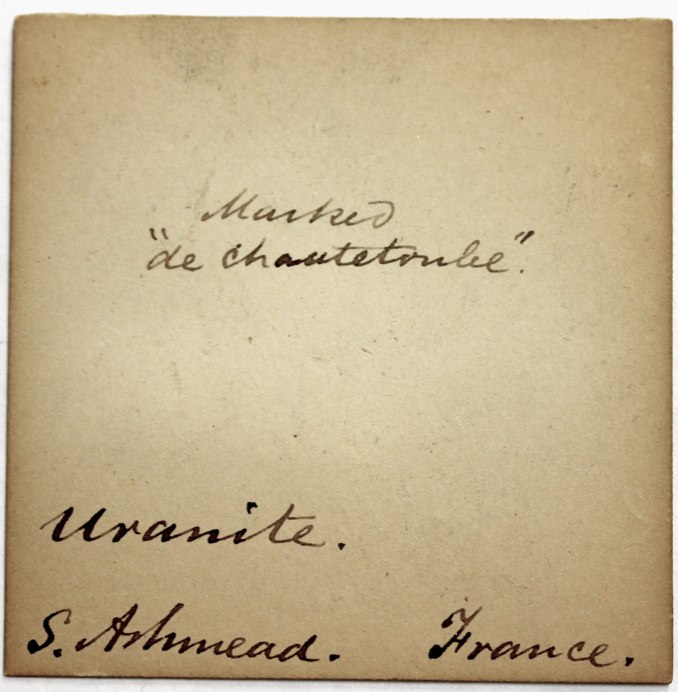 Marked
"de chautetoube".
Uranite.
S. Ashmead. France.